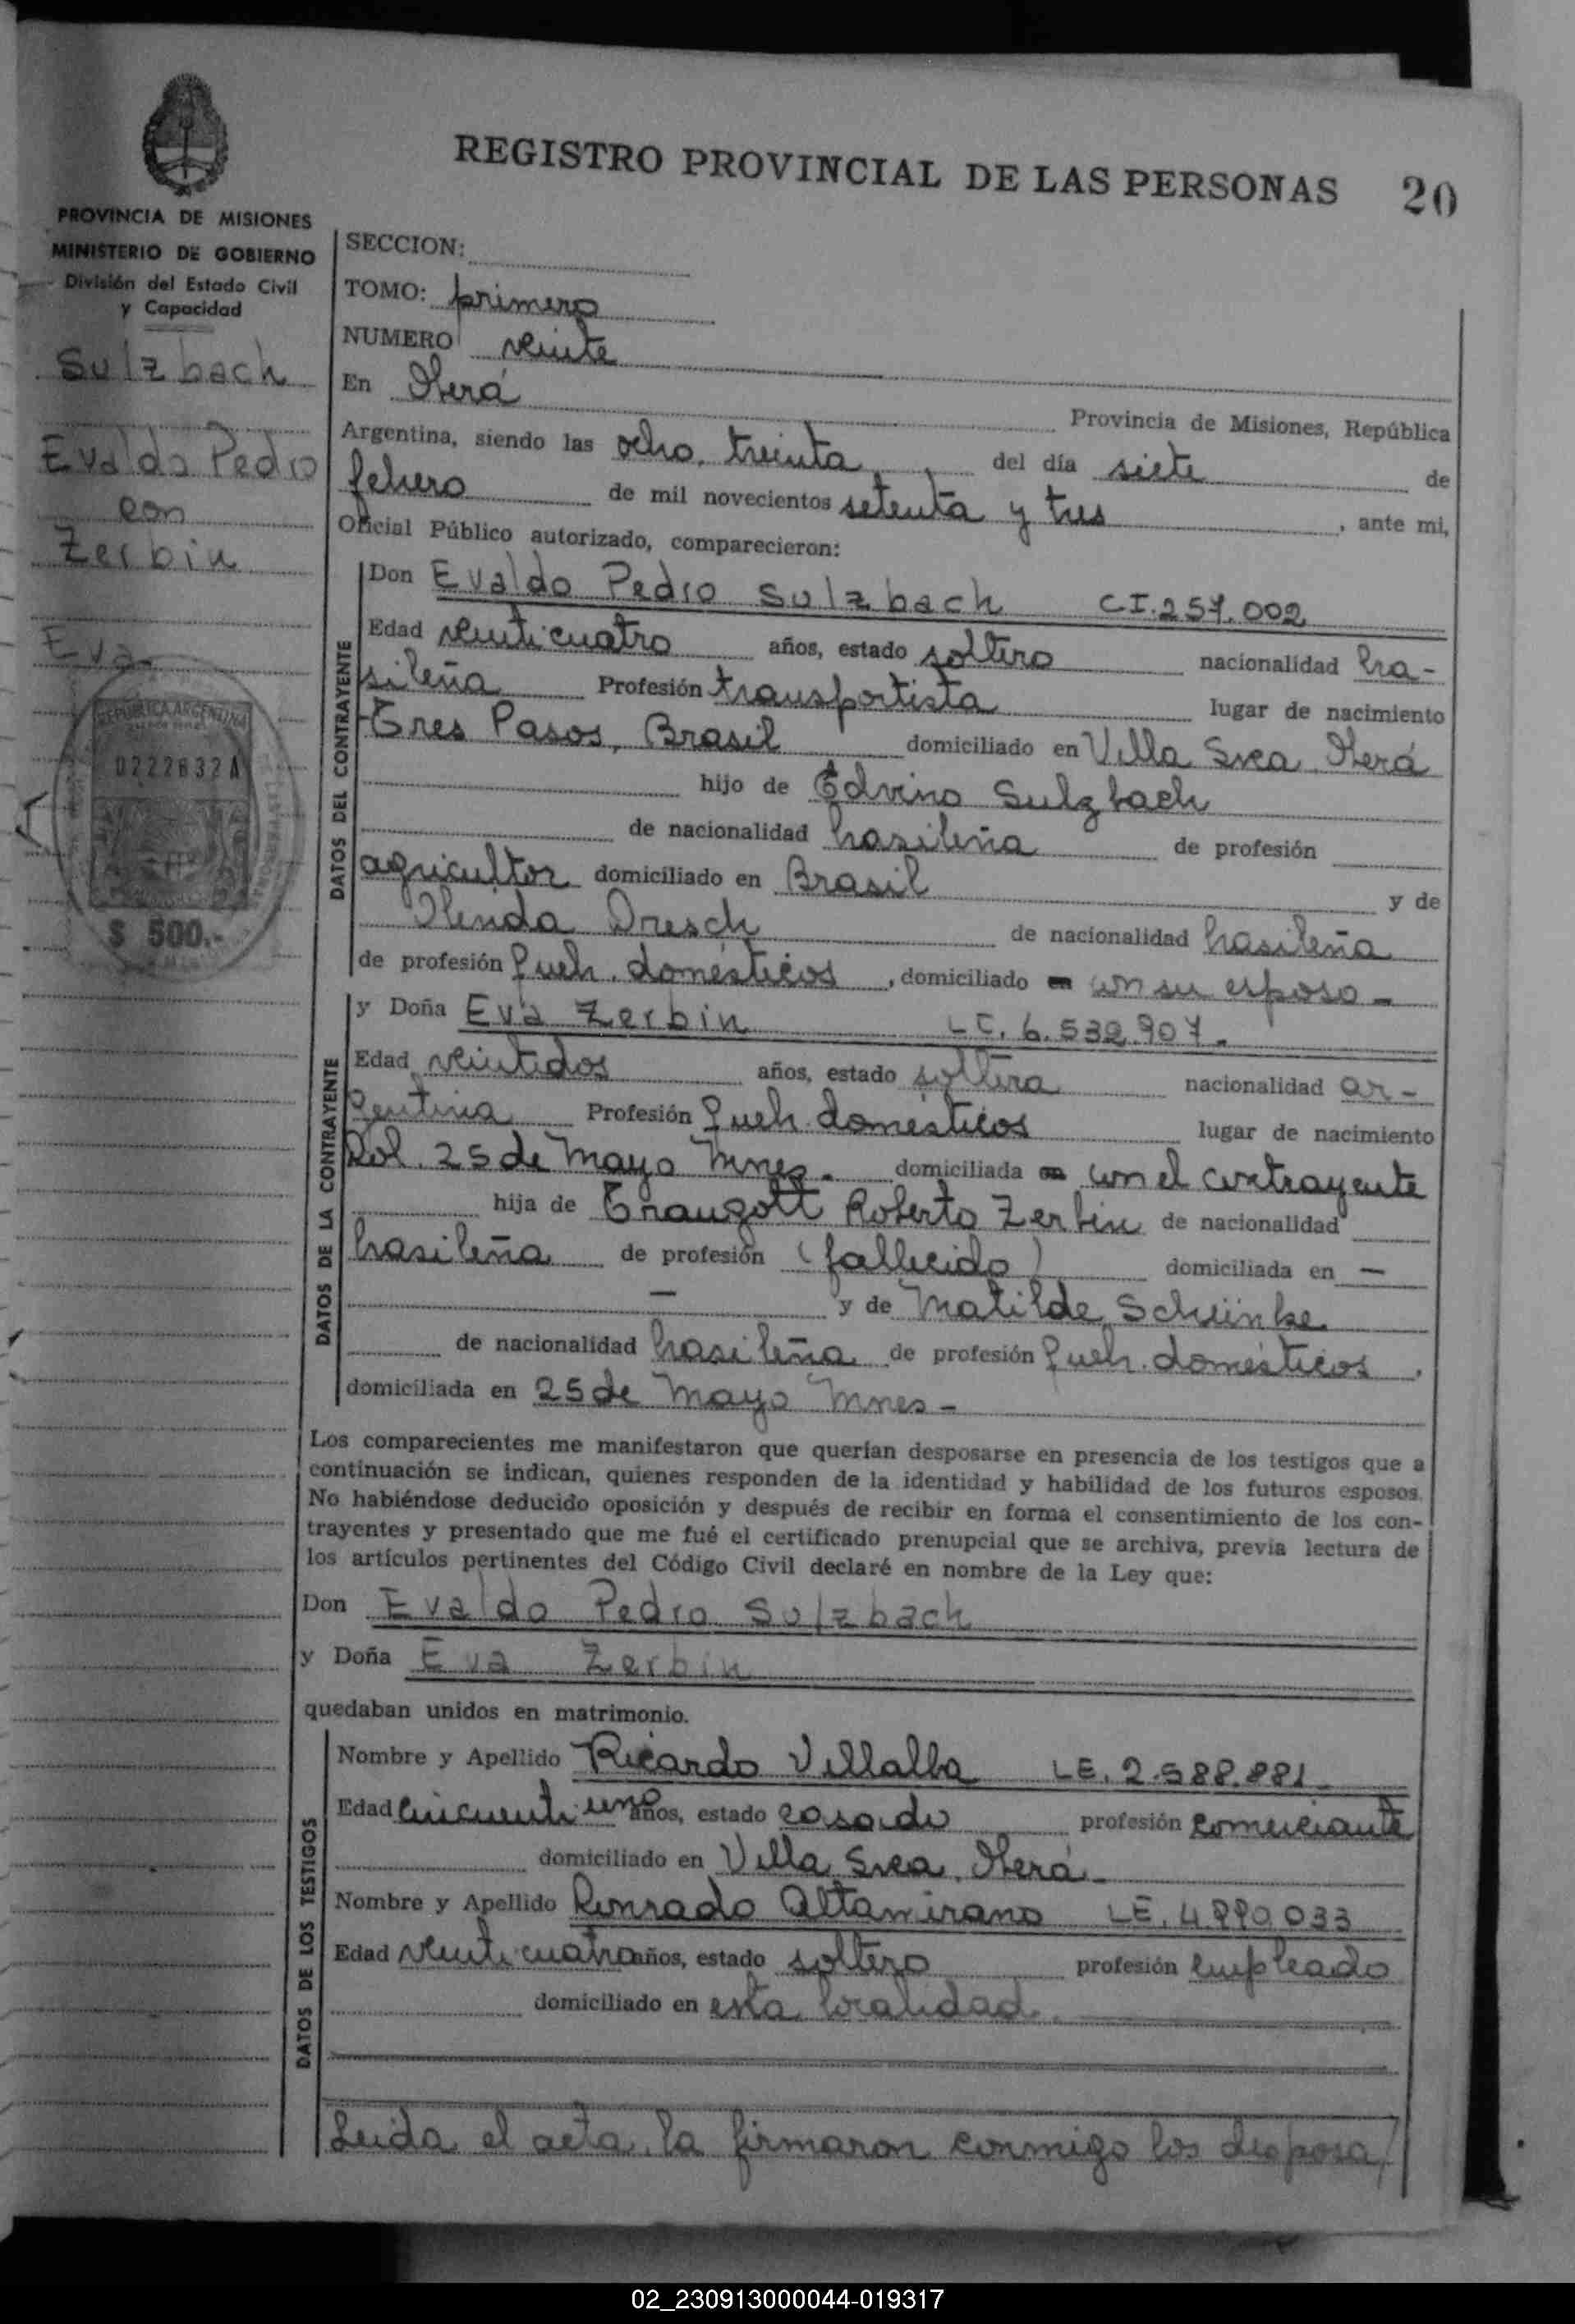 REGISTRO PROVINCIAL DE LAS PERSONAS 20
PROVINCIA DE MISIONES
MINISTERIO DE GOBIERNO
División del Estado Civil
y Capacidad
Sulzbach
Evaldo Pedro
con
Zerbin
Eva
REPUBLICA ARGENTINA
0222632 A
$ 500.-
SECCION:
TOMO: primero
NUMERO veinte
En Oberá Provincia de Misiones, República
Argentina, siendo las ocho, treinta del día siete de
febrero de mil novecientos setenta y tres, ante mi,
Oficial Público autorizado, comparecieron:
DATOS DEL CONTRAYENTE
Don Evaldo Pedro Sulzbach CI. 257.002
Edad veinticuatro años, estado soltero nacionalidad bra-
sileña Profesión transportista lugar de nacimiento
Tres Pasos, Brasil domiciliado en Villa Svea, Oberá
hijo de Edvino Sulzbach
de nacionalidad brasileña de profesión
agricultor domiciliado en Brasil y de
Olinda Dresch de nacionalidad brasileña
de profesión queh. domésticos, domiciliado en con su esposo -
DATOS DE LA CONTRAYENTE
y Doña Eva Zerbin LC. 6.532.907.-
Edad veintidos años, estado soltera nacionalidad ar-
gentina Profesión queh. domésticos lugar de nacimiento
Col. 25 de Mayo Mnes. domiciliada en con el contrayente
hija de Traugott Roberto Zerbin de nacionalidad
brasileña de profesión (fallecido) domiciliada en —
— y de Matilde Schünke
de nacionalidad brasileña de profesión queh. domésticos,
domiciliada en 25 de Mayo Mnes -
Los comparecientes me manifestaron que querían desposarse en presencia de los testigos que a
continuación se indican, quienes responden de la identidad y habilidad de los futuros esposos.
No habiéndose deducido oposición y después de recibir en forma el consentimiento de los con-
trayentes y presentado que me fué el certificado prenupcial que se archiva, previa lectura de
los artículos pertinentes del Código Civil declaré en nombre de la Ley que:
Don Evaldo Pedro Sulzbach
y Doña Eva Zerbin
quedaban unidos en matrimonio.
DATOS DE LOS TESTIGOS
Nombre y Apellido Ricardo Villalba LE. 2.588.881.-
Edad cincuenti uno años, estado casado profesión comerciante
domiciliado en Villa Svea, Oberá -
Nombre y Apellido Conrado Altamirano LE. 4.990.033
Edad veinticuatro años, estado soltero profesión empleado
domiciliado en esta localidad.
Leida el acta, la firmaron conmigo los desposa/
02_230913000044-019317